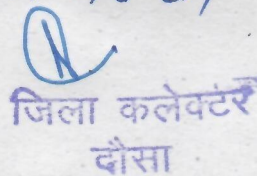 जिला कलेक्टर
दौसा